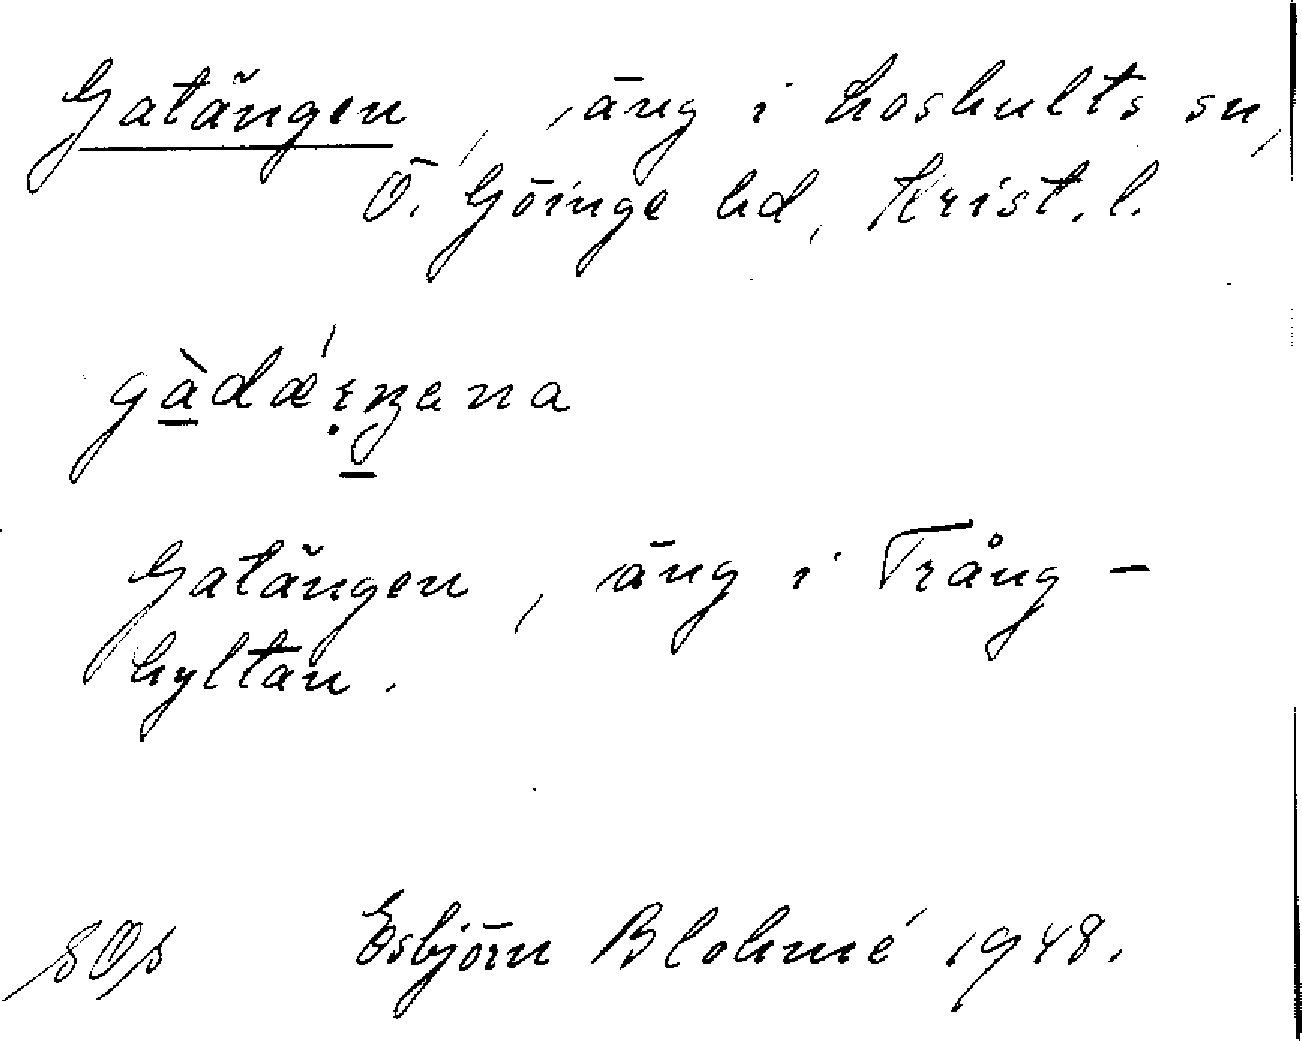 Gatängen, äng i Loshults sn,
Ö. Göinge hd, Krist. l.
Gatängen, äng i Trång-
hyltan.
Esbjörn Blohmé 1948.